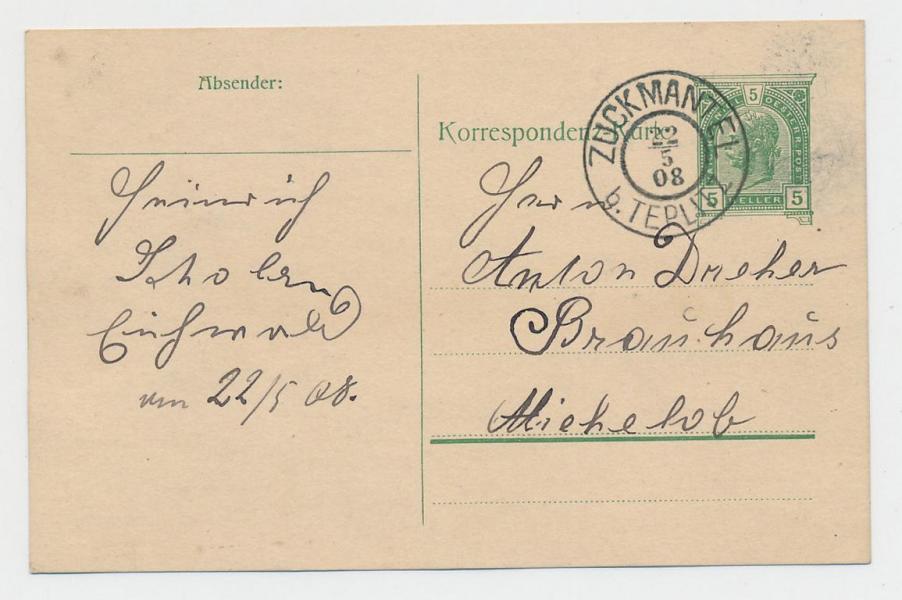 Absender:
Heinrich
Eichwald
am 22/5 08.
Korrespondenz-Karte
ZUCKMANTEL
22
5
08
b. TEPLITZ
5
OESTERR. POST
5 HELLER 5
Herrn
Anton Dreher
Brauhaus
Michelob